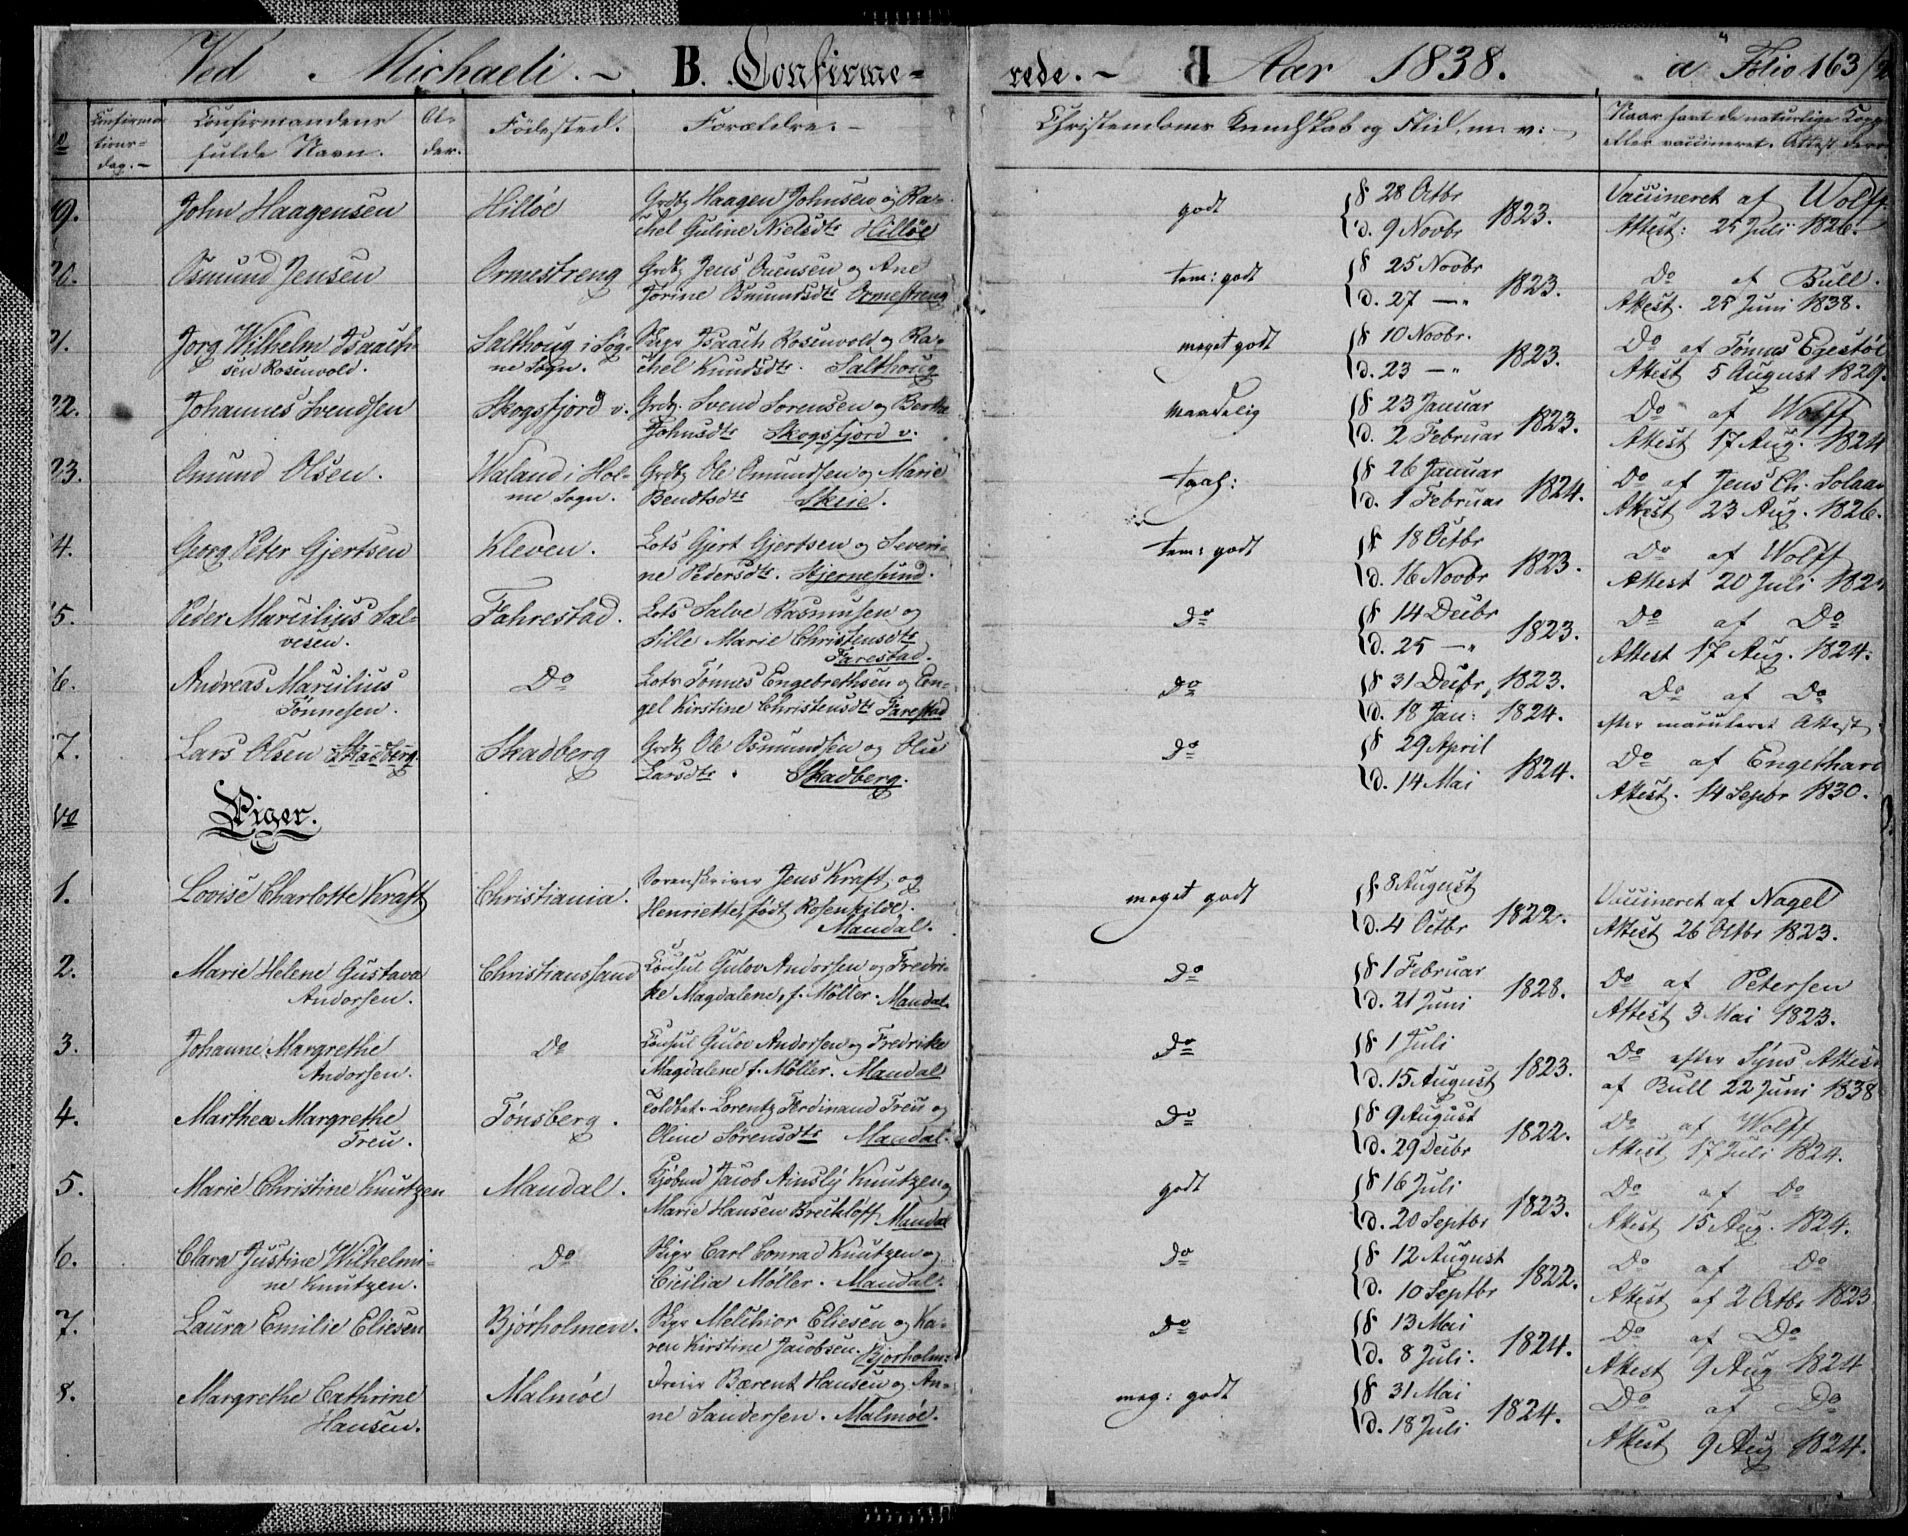 Ved Michaeli. ~ B. Confirme= rede. ~ Aar 1838. a Folio 163
Confirma tions= dag. ~ | Confirmandens fulde Navn. | Al= der. | Födested. | Forældre. ~ | Christendoms Kundskab og Flid, m. v: | Naar havt de naturlige Kopp eller vaccineret. Attest derr
19. John Haagensen | Hilløe | Grdbr Haagen Johnsen og Ra=
chel Guline Nielsdtr Hilløe | godt | f 28 Octbr
d. 9 Novbr 1823. | Vaccineret af Wolff
Attest: 25 Juli 1826.
20. Osmund Jensen | Ormestreng | Grdbr Jens Ouensen og Ane
Torine Osmundsdtr Ormestreng | tem: godt | f 25 Novbr
d. 27 — " 1823. | Do af Bull.
Attest. 25 Juni 1838.
21. Jørg Wilhelm Isaach=
sen Rosenvold. | Salthoug i Sog=
ne Sogn. | Skpr Isaach Rosenvold og Ra=
chel Knudsdtr. Salthoug | meget godt | f 10 Novbr.
d. 23 — " 1823. | Do af Tønnes Egestøl
Attest 5 August 1829.
22. Johannes Svendsen | Skogsfjord v. | Grdbr. Svend Sorensen og Berthe
Johnsdtr Skogsfjord v. | maadelig | f 23 Januar
d. 2 Februar 1823. | Do af Wolff
Attest 17 Aug. 1824
23. Omund Olsen. | Waland i Hol=
me Sogn. | Grdbr Ole Omundsen og Marie
Bendtsdtr Skeie. | f 26 Januar
d. 1 Februar 1824. | Do af Jens Ch. Solaas
Attest 23 Aug. 1826.
4. Georg Peter Gjertsen | Kleven. | Lots Gjert Gjertsen og Severi=
ne Pedersdtr. Stjernesund. | tem: godt | f 18 Octbr
d. 16 Novbr 1823. | Do af Wolff
Attest 20 Juli 182
5. Peder Marcilius Sal=
vesen. | Fahrestad. | Lots Salve Rasmusen og
Sille Marie Christensdtr
Farestad. | Do | f 14 Decbr
d. 25 — " 1823. | Do af Do
Attest 17 Aug. 1824.
6. Andreas Marcilius
Tönnesen. | Do | Lots Tönnes Engebrethsen og En=
gel Kirstine Christensdtr Farestad | Do | f 31 Decbr, 1823.
d. 18 Jan: 1824. | Do af Do
efter Attest
7. Lars Olsen Skadberg. | Skadberg | Grdbr Ole Osmundsen og Olie
Larsdtr. Skadberg. | Do | f 29 April
d. 14 Mai 1824. | Do af Engelhart
Attest. 14 Sepbr 1830.
No Piger.
1. Lovise Charlotte Kraft | Christiania. | Sorenskriver Jens Kraft og
Henriette, født Rosenkilde.
Mandal. | meget godt | f. 8 August
d. 4 Octbr 1822. | Vaccineret af Nagel
Attest 26 Octbr 1823.
2. Marie Helene Gustava
Andorsen. | Christianssand | Consul Gulov Andorsen og Fredri=
ke Magdalene, f. Møller. Mandal. | Do | f 1 Februar
d. 21 Juni 1828. | Do af Petersen
Attest 3 Mai 1823.
3. Johanne Margrethe
Andorsen. | Do | Consul Gulov Andorsen og Fredrike
Magdalene f. Møller. Mandal | Do | f 1 Juli
d. 15 August 1823. | Do efter Syns Attest
af Bull 22 Juni 1838
4. Marthea Margrethe
Treu. | Tonsberg. | Toldbet. Lorentz Ferdinand Treu og
Oline Sørensdtr Mandal. | Do | f 9 August
d. 29 Decbr 1822. | Do af Wolff
Attest 17 Juli 1824.
5. Marie Christine Knutzen | Mandal. | Kjøbmd Jacob Ainsly Knutzen og
Marie Hansen Mandal | godt | f 16 Juli
d. 20 Septbr 1823. | Do af Do
Attest 15 Aug. 1824.
6. Clara Justine Wilhelmi=
ne Knutzen. | Do | Skpr Carl Conrad Knutzen og
Cicilia Møller. Mandal. | Do | f 12 August
d. 10 Septbr 1822. | Do af Do
Attest af 2 Octbr 1823
7. Laura Emilie Eliesen | Bjørholmen. | Skpr Melchior Eliesen og Ka=
ren Kirstine Jacobsen. Bjørholm: | Do | f 13 Mai
d. 8 Juli. 1824. | Do af Do
Attest 9 Aug 1824
8. Margrethe Cathrine
Hansen. | Malmøe | Bærent Hansen og An=
ne Sandersen. Malmøe. | meg: godt | f 31 Mai
d. 18 Juli 1824. | Do af Do
Attest 9 Aug 1824.